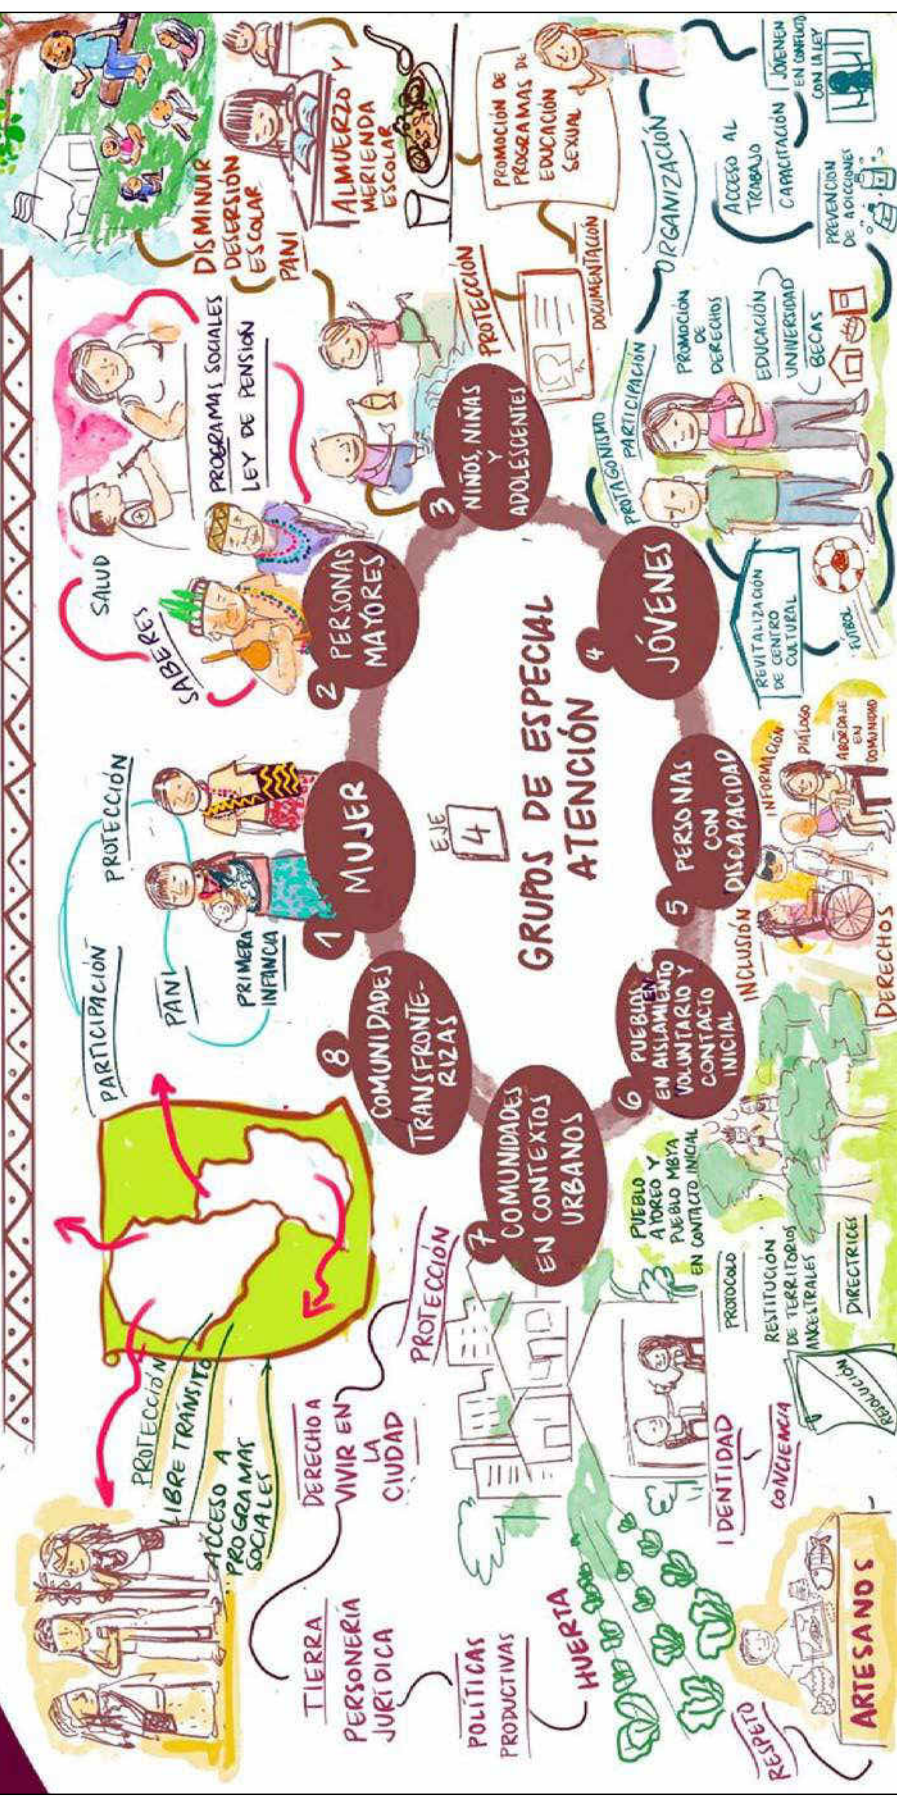 EJE
4
GRUPOS DE ESPECIAL
ATENCIÓN
1
MUJER
PARTICIPACIÓN
PROTECCIÓN
PANI
PRIMERA
INFANCIA
2
PERSONAS
MAYORES
SABERES
SALUD
PROGRAMAS SOCIALES
LEY DE PENSIÓN
3
NIÑOS, NIÑAS
Y
ADOLESCENTES
DISMINUIR
DESERSIÓN
ESCOLAR
PANI
ALMUERZO Y
MERIENDA
ESCOLAR
PROTECCIÓN
DOCUMENTACIÓN
PROMOCIÓN DE
PROGRAMAS DE
EDUCACIÓN
SEXUAL
4
JÓVENES
PROTAGONISMO
PARTICIPACIÓN
ORGANIZACIÓN
PROMOCION
DE
DERECHOS
EDUCACIÓN
UNIVERSIDAD
BECAS
ACCESO AL
TRABAJO
CAPACITACIÓN
JÓVENEN
EN CONFLICTO
CON LA LEY
PREVENCION
DE ADICCIONES
REVITALIZACIÓN
DE CENTRO
CULTURAL
FUTBOL
5
PERSONAS
CON
DISCAPACIDAD
INCLUSIÓN
INFORMACIÓN
DIÁLOGO
ABORDAJE
EN
COMUNIDAD
DERECHOS
6
PUEBLOS EN
EN AISLAMIENTO
VOLUNTARIO Y
CONTACTO
INICIAL
PUEBLO
AYOREO Y
PUEBLO MBYA
EN CONTACTO INICIAL
PROTOCOLO
RESTITUCIÓN
DE TERRITORIOS
ANCESTRALES
DIRECTRICES
RESOLUCIÓN
7
COMUNIDADES
EN CONTEXTOS
URBANOS
PROTECCIÓN
DERECHO A
VIVIR EN
LA
CIUDAD
TIERRA
PERSONERÍA
JURÍDICA
POLÍTICAS
PRODUCTIVAS
HUERTA
IDENTIDAD
CONCIENCIA
RESPETO
ARTESANOS
8
COMUNIDADES
TRANSFRONTE-
RIZAS
PROTECCIÓN
LIBRE TRÁNSITO
ACCESO A
PROGRAMAS
SOCIALES